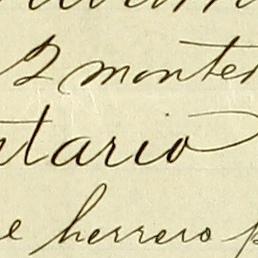 2 monter
ntario
e herrero p